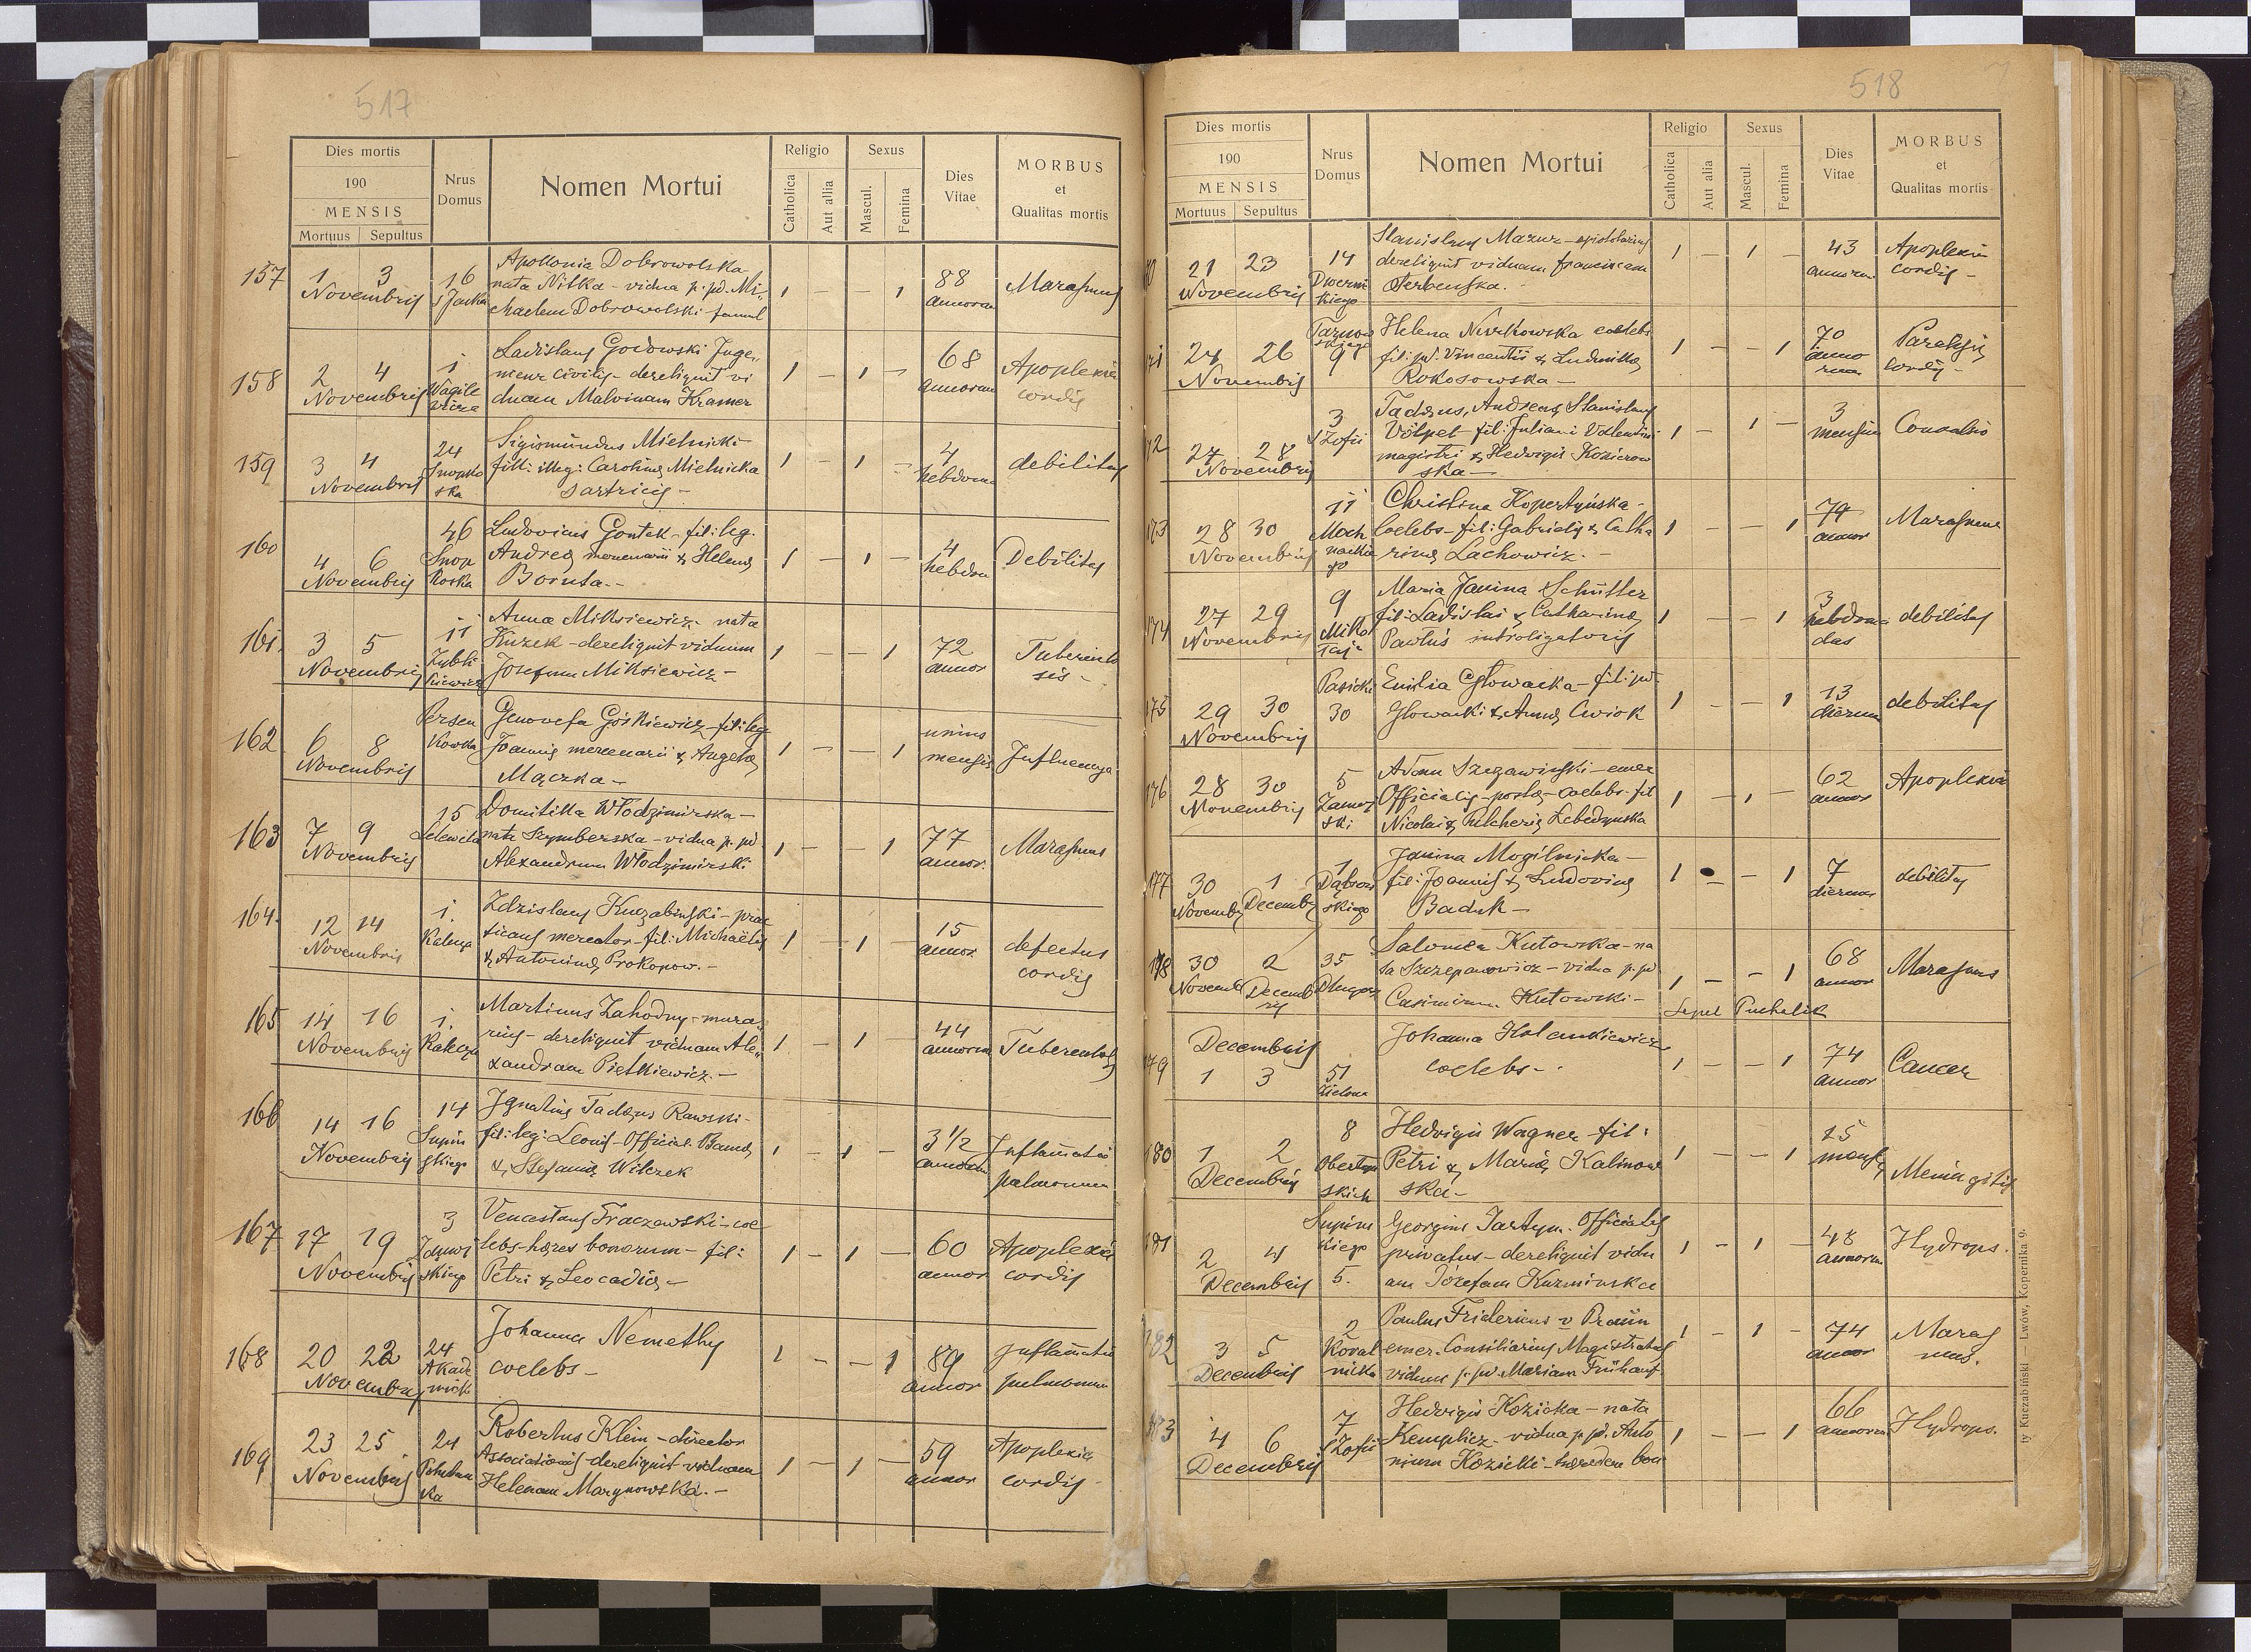 517
Dies mortis
190
MENSIS
Mortuus Sepultus
Nrus Domus
Nomen Mortui
Religio
Catholica
Aut allia
Sexus
Mascul.
Femina
Dies Vitae
MORBUS
et
Qualitas mortis
157 1 3 Novembris 16
Apollonia Dobrowolska
nata Nitka - vidua p. pd. Mi-
chaelem Dobrowolski famul
1 - - 1 88 annorum Marasmus
158 2 4 Novembris 1
Ladislaus Godowski Inge-
nieur civilis - dereliquit vi
duam Malvinam Kramer
1 - 1 - 68 annorum Apoplexia cordis
159 3 4 Novembris 24 Snopkowska
Sigismundus Mielnicki
fil: illeg: Carolinae Mielnicka
sartricis -
1 - 1 - 4 hebdom debilitas
160 4 6 Novembris 46 Snopkoska
Ludovicus Gontek - fil: leg.
Andreae mercenarii & Helenae
Boruta. -
1 - 1 - 4 hebdom Debilitas
161. 3 5 Novembris 11 Zyblikiewicz
Anna Miksiewicz nata
Kuzek - dereliquit viduum
Josefum Miksiewicz -
1 - - 1 72 annor Tuberculosis -
162 6 8 Novembris Persenkowka
Genovefa Góskiewicz - fil: leg
Joannis mercenarii & Angelae
Mączka -
1 - - 1 unius mensis Influenza
163 7 9 Novembris 15 Lelewela
Domitilla Włodzimirska -
nata Szymberska - vidua p. pd
Alexandrum Włodzimirski
1 - - 1 77 annor. Marasmus
164. 12 14 Novembris 1. Kalecza
Zdzislaus Kuczabinski - prac
ticans mercator - fil: Michaëlis
& Antoninae Prokopow. -
1 - 1 - 15 annor defectus cordis
165 14 16 Novembris 1. Kalecza
Martinus Zahodny - mura-
rius - dereliquit viduam Ale-
xandram Pietkiewicz. -
1 - 1 - 44 annorum Tuberculosis
166 14 16 Novembris 14 Supinskiego
Ignatius Tadeus Rawski -
fil: leg: Leonis - Official. Bancae
& Stefaniae Wilczek
1 - 1 - 3 1/2 annorum Inflamatio pulmonum
167 17 19 Novembris 3
Venceslaus Traczewski - coe
lebs - haeres bonorum - fil:
Petri & Leocadiae -
1 - 1 - 60 annor Apoplexia cordis
168 20 22 Novembris 24 Akademick
Johanna Nemethy
coelebs -
1 - - 1 89 annor Inflamatio pulmonum
169 23 25 Novembris 24
Robertus Klein - director
Associationis - dereliquit viduam
Helenam Marynowska. -
1 - 1 - 59 annor Apoplexia cordis
518
Dies mortis
190
MENSIS
Mortuus Sepultus
Nrus Domus
Nomen Mortui
Religio
Catholica
Aut alia
Sexus
Mascul.
Femina
Dies Vitae
MORBUS
et
Qualitas mortis
21 23 Novembris 14 Dwernickiego
Stanislaus Mazur -
dereliquit viduam franciscam
1 - 1 - 43 annorum Apoplexia cordis -
171 24 26 Novembris Tarnowskiego 9
Helena Nurkowska coelebs
fil: pd. Vincentii & Ludmilla
Rokosowska -
1 - - 1 70 annorum Paralysis cordis -
172 27 28 Novembris 3 S Zofii
Tadeus, Andreas Stanislaus
Völpel fil: Juliani Valentini
magistri & Hedvigis Kozierow
ska -
1 - 1 - 3 mensium
173 28 30 Novembris 11 Mochnackiego
Christina Kopertyńska -
Coelebs - fil: Gabrielis & Catha
rinae Lachowicz. -
1 - - 1 79 annor Marasmus
174 27 29 Novembris 9 Mikołaja
Maria Janina Schütter
fil: Ladislai & Catharinae
Pawluś introligatoris
1 - - 1 3 hebdomadas debilitas
175 29 30 Novembris Pasieki 30
Emilia Głowacka - fil: pd.
Głowacki & Annae Cwiok
1 - - 1 13 dierum debilitas
176 28 30 Novembris 5 Zamojski
Adam Szczawinski - emer
Officialis - postae - coelebs - fil
Nicolai & Pulcheriae Łebedynska
1 - 1 - 62 annor Apoplexia
177 30 Novembr 1 Decembr 1 Dąbrowskiego
Janina Mogilnicka -
fil: Joannis & Ludovicae
Baduk -
1 - - 1 7 dierum debilitas
178 30 Novemb 2 Decembris 35 Długosz
Salomea Kutowska - na
ta Szczepanowicz - vidua p. pd
Casimirum Kutowski -
1 - - 1 68 annor Marasmus
Sepel Puchalik
179 Decembris 1 3 51 Zielona
Johanna Holenkiewicz
coelebs -
1 - - 1 74 annor Cancer
180 1 2 Decembris 8 Obertynskich
Hedvigis Wagner - fil:
Petri & Mariae Kalinow
ska -
1 - - 1 15 mensis Meningitis
181 2 4 Decembris Supinskiego 5.
Georgius Tartyn. Officialis
privatus - dereliquit vidu
am Józefam Kuzminska
1 - 1 - 48 annorum Hydrops.
182 3 5 Decembris 2
Paulus Fridericus v Braün
emer. Consiliarius Magistratus
viduus p. pd. Mariam Frühauf
1 - 1 - 74 annor Marasmus.
183 4 6 Decembris 7 S Zofii
Hedvigis Kozicka - nata
Kemplicz - vidua p. pd. Anto
nium Kozicki - haeredem bon
1 - - 1 66 annorum Hydrops.
ty Kuczabiński — Lwów, Kopernika 9.